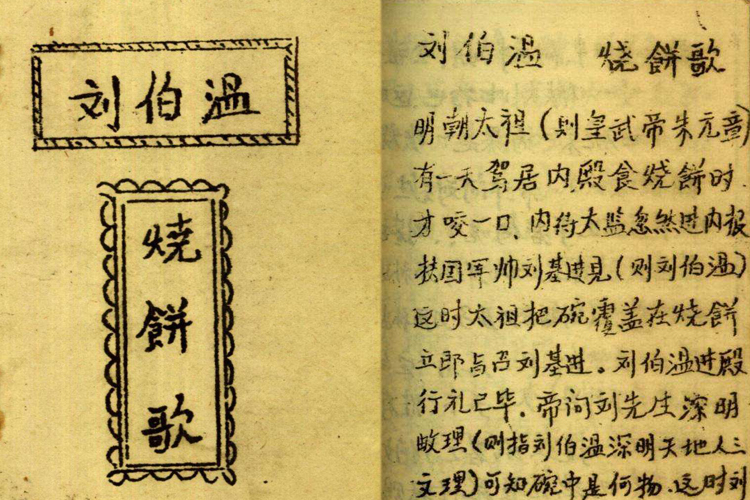 刘伯温
烧餅歌
刘伯温 烧餅歌
明朝太祖(则皇武帝朱元章)
有一天驾居内殿食烧餅时.
才咬一口、内侍太监忽然进内报
扶国军帅刘基进見(则刘伯温)
这时太祖把碗覆盖在烧餅
立即 召刘基进。刘伯温进殿
行礼已毕.帝问刘先生深明
故理(则指刘伯温深明天地人三
文理)可知碗中是何物.这时刘